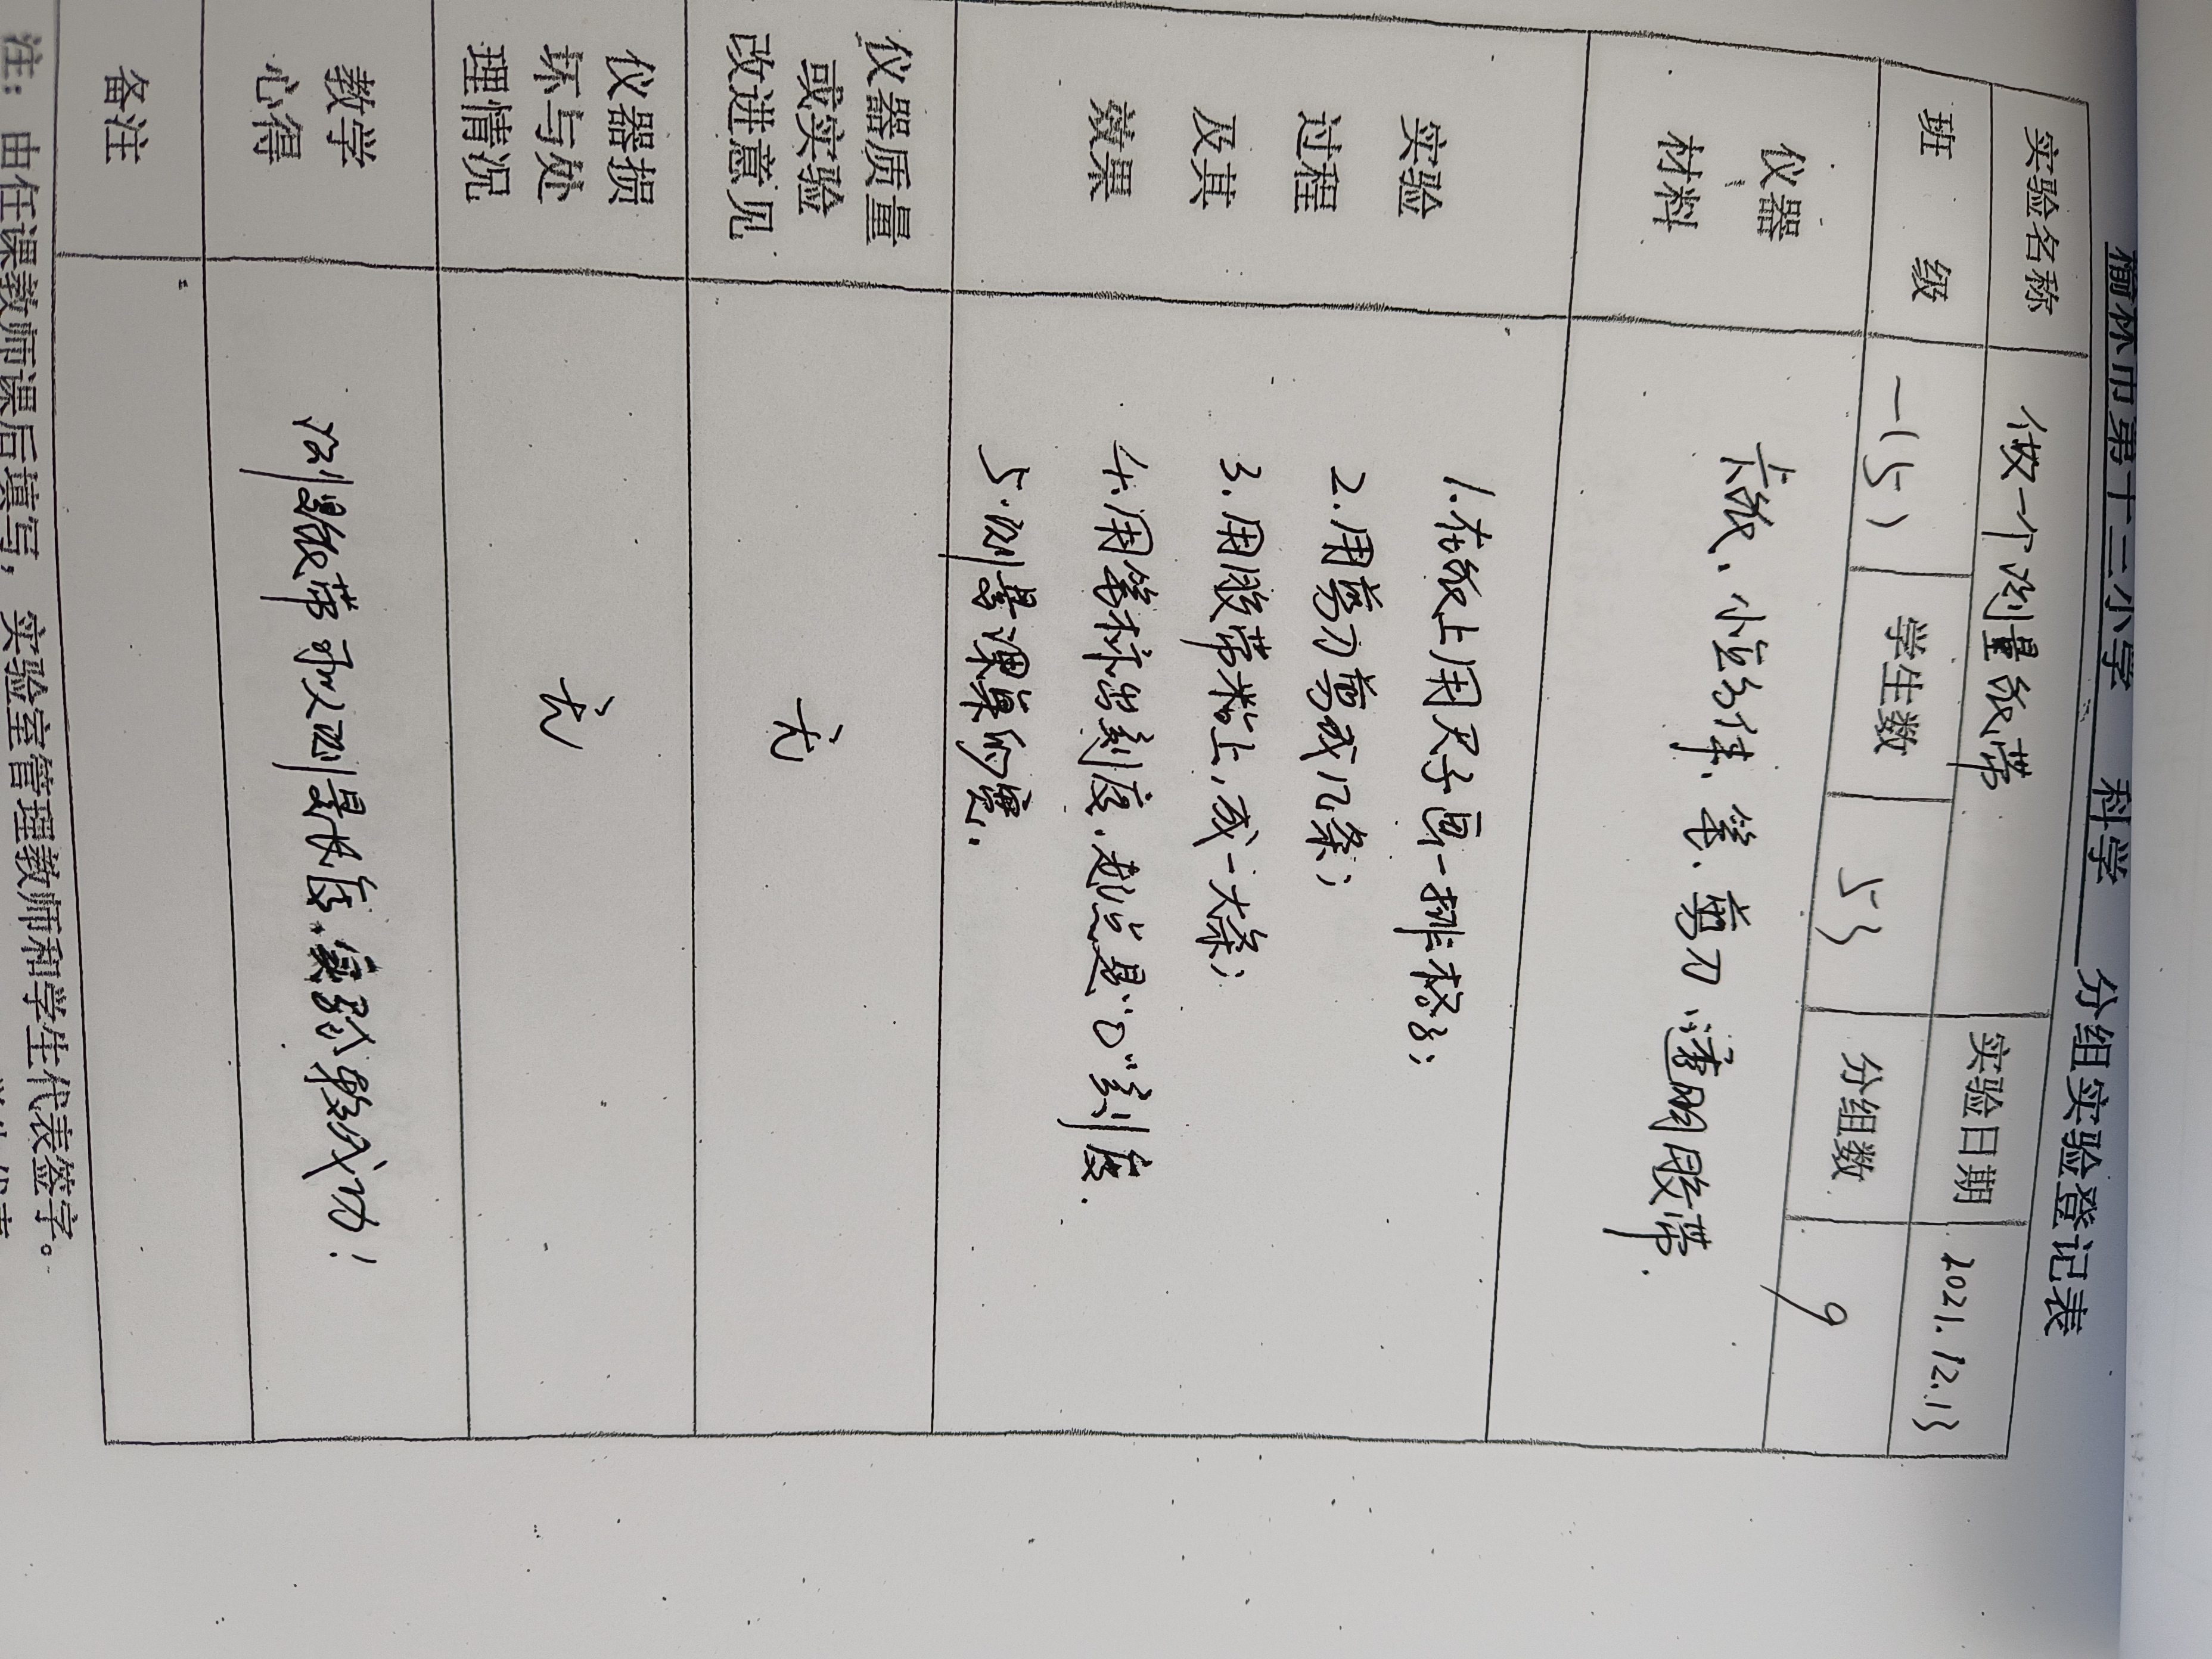 榆林市第十三小学 科学 分组实验登记表
实验名称 做一个测量纸带 实验日期 2021.12.13
班级 一(5) 学生数 53 分组数 9
仪器材料 卡纸、小立方体、笔、剪刀、透明胶带.
实验过程及其效果
1.在纸上用尺子画一排格子;
2.用剪刀剪成几条;
3.用胶带粘上,成一大条;
4.用笔标出刻度.起点是“0”刻度.
5.测量课桌的宽.
仪器质量或实验改进意见 无
仪器损坏与处理情况 无
教学心得 测量纸带可以测量长度.实验较成功!
备注
注:由任课教师课后填写,实验室管理教师和学生代表签字。